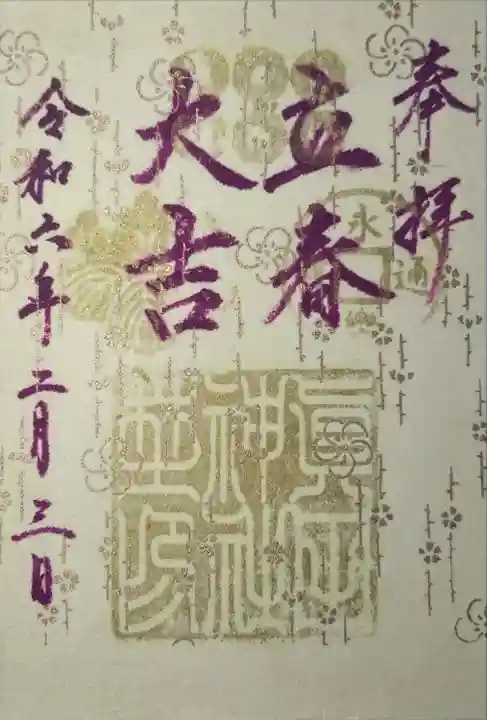 奉拝
立春
大吉
令和六年二月三日
永
通
神社
之印